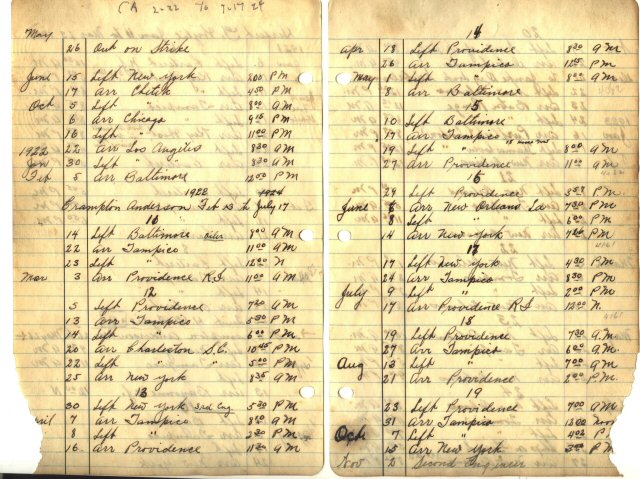 CA 2-22 To 7-17 24
May
26 Out on Strike
June 15 Left New York 200 P.M
17 Arr Chitik 4 50 P.M
Oct 5 Left " 8 00 A.M
6 Arr Chicago 9 15 P.M
16 Left " 11 00 P.M
1922 22 Arr Los Angiles 8 30 A.M
Jan 30 Left " 8 30 A.M
Feb 5 Arr Baltimore 12 00 P.M
1922 1924
Crampton Anderson Feb 13 to July 17
10
14 Left Baltimore Oiler 8 00 A.M
22 Arr Tampico 11 00 A.M
23 Left " 12 00 N
Mar 3 Arr Providence R.I 11 00 A.M
12
5 Left Providence 7 30 A.M
13 Arr Tampico 5 30 P.M
14 Left " 6 00 P.M
20 Arr Charleston S.C. 10 45 P.M
22 Left " 5 00 P.M
25 Arr New York 8 35 A.M
13
30 Left New York 3rd Eng 5 30 P.M
April 7 Arr Tampico 8 10 A.M
8 Left " 2 30 P.M
16 Arr Providence 11 30 A.M
14
Apr 18 Left Providence 8 30 A.M
26 Arr Tampico 12 45 P.M
May 1 Left " 8 00 A.M
8 Arr Baltimore
15
10 Left Baltimore
17 Arr Tampico
19 Left " 8 00 A.M
27 Arr Providence 11 00 A.M
16
29 Left Providence P.M
June 6 Arr New Orleans La 7 30 P.M
8 Left " 6 00 P.M
14 Arr New York P.M
4161
17
17 Left New York 4 30 P.M
24 Arr Tampico 8 30 P.M
July 9 Left " 2 00 P.M
17 Arr Providence R.I 12 00 N.
4161
18
19 Left Providence 7 30 A.M
27 Arr Tampico 6 00 A.M.
Aug 13 Left " 7 00 A.M
21 Arr Providence 2 00 P.M
19
23 Left Providence 7 00 A.M
31 Arr Tampico 12 00 Noon
Oct 7 Left " 4 02 P.
15 Arr New York 3 00 P.M
Nov 2 Second Engineer